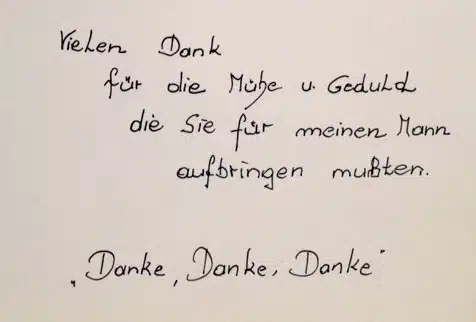 Vielen Dank
für die Mühe u. Geduld
die Sie für meinen Mann
aufbringen mußten.
„Danke, Danke, Danke"